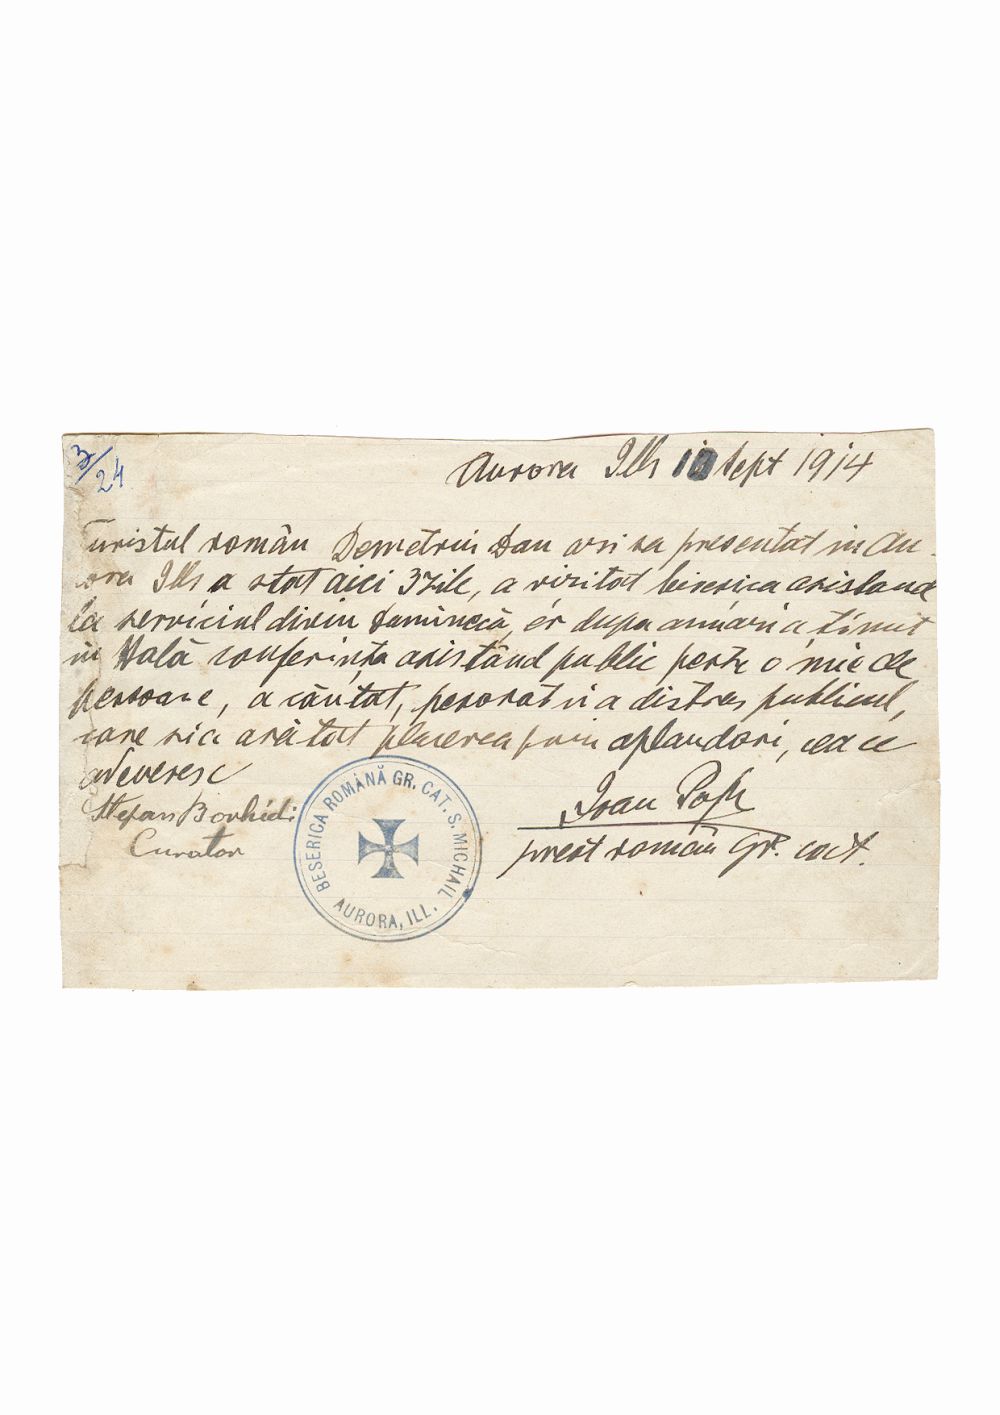 3/24
Aurora Ills 10 Sept 1914
Turistul român Demetriu Dan asi sa presentat in Au-
rora Ills a stat aici 3 zile, a vizitat biserica asistand
la serviciul divin Duminecă, ér dupa amiazi a ținut
in Hală conferința asistând public peste o mie de
persoane, a cântat, perorat si a distras publicul,
care sia arătat placerea prin aplaudari, cea ce
adeveresc
Stefan Borhidi
Curator
Ioan Pop
preot român gr. cat.
BESERICA ROMÂNĂ GR. CAT. S. MICHAIL
AURORA, ILL.